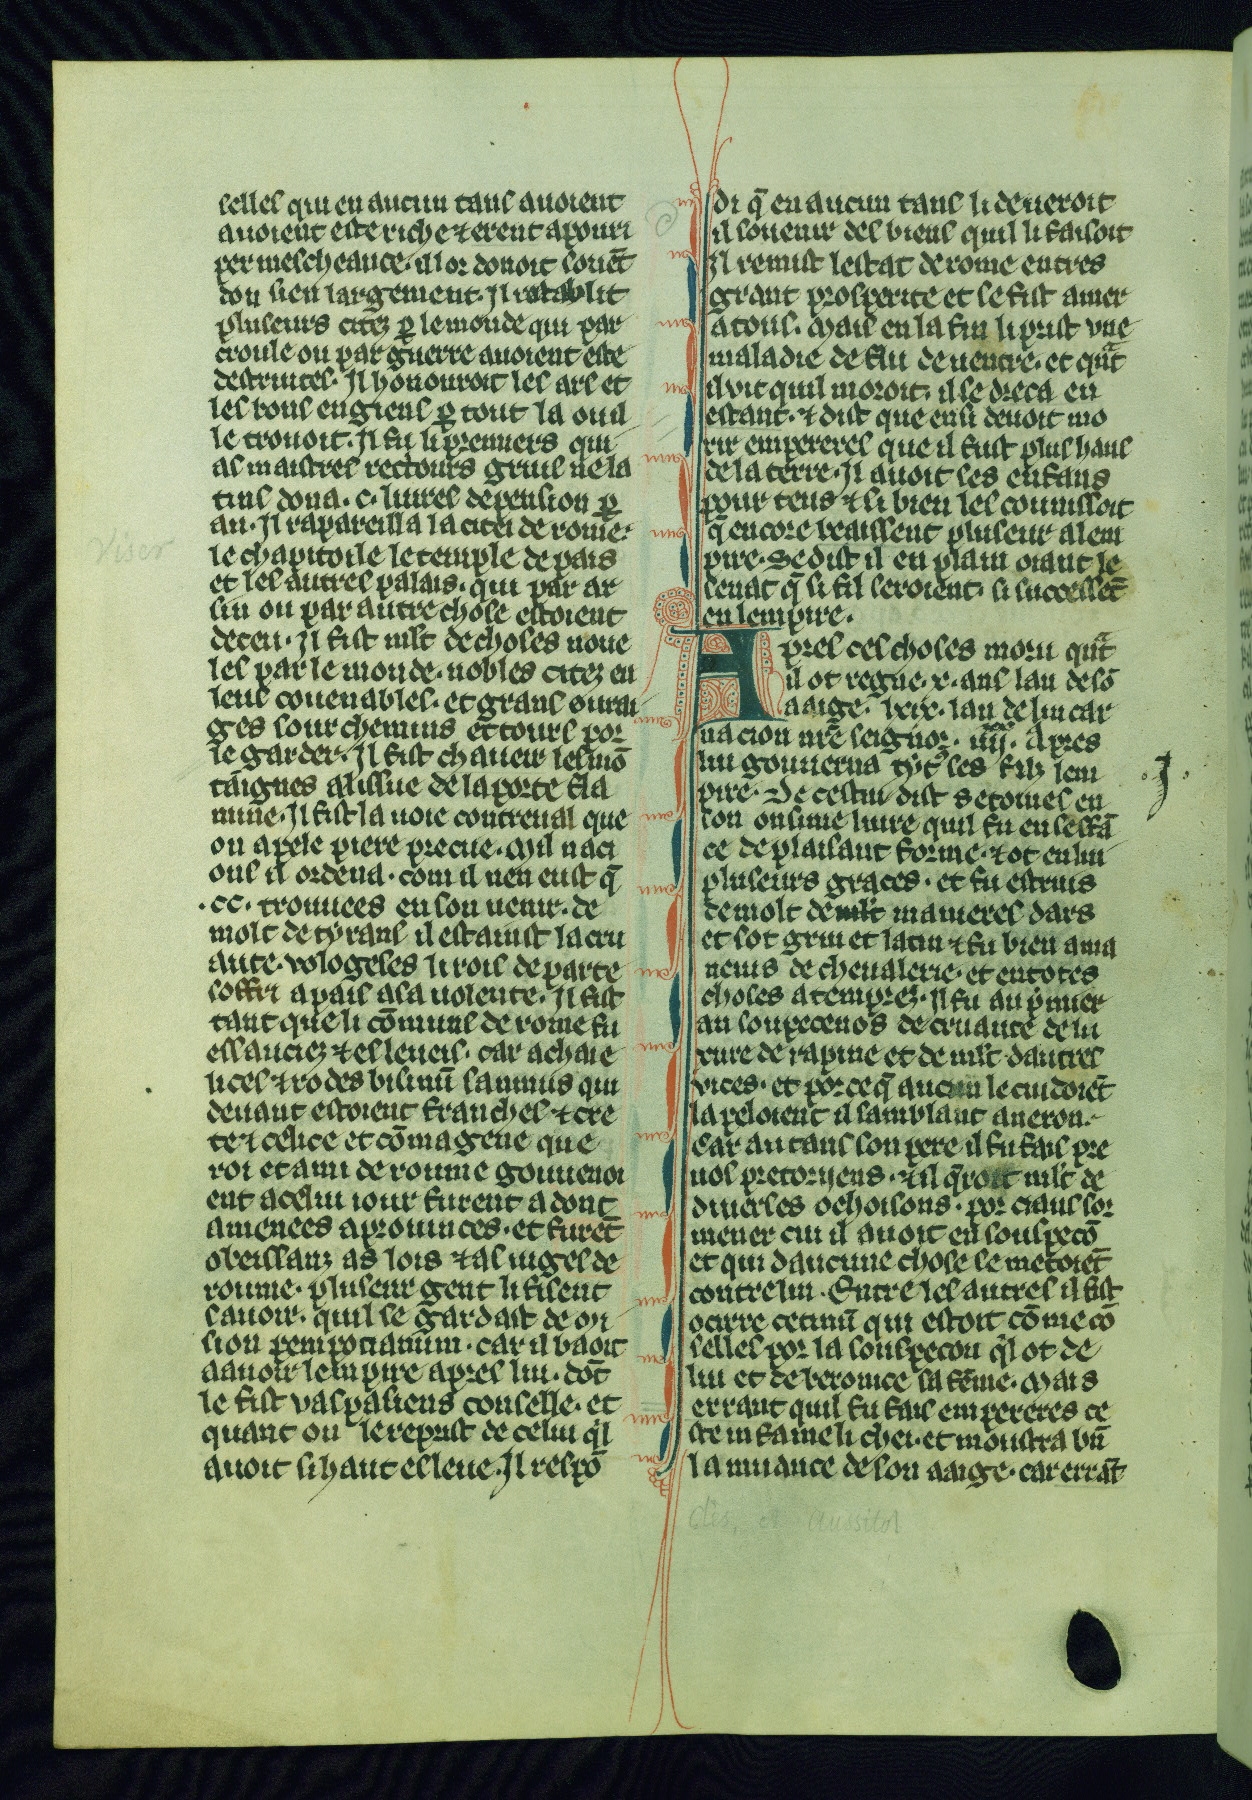 selles qui en aucun tans auoient
auoient este riche ⁊ erent apouri
per mescheance. il lor donoit souēt
dou sien largement. Il restablit
pluseurs citez ꝑ le monde qui par
croule ou par guerre auoient este
destruites. Il honouroit les ars et
les bons engiens ꝑ tout la ou il
le trouoit. Il fu li premiers qui
as maistres rectours grius ne la
tins dona .c. liures de pension ꝑ
an. Il rapareilla la citei de rome.
le chapitoile le temple de pais
et les autres palais. qui par ar
sin ou par autre chose estoient
deceu. Il fist mlt de choses noue
les par le monde. nobles citez en
leus couenables. et grans ourai
ges sour chemins et tours por
le garder. Il fist chaueir les mō
taignes a lissue de la porte fla
mine. Il fist la uoie contreual que
on apele piere precue. Mil naci
ons il ordena. com il nen eust q̄
.cc. trouuees en son uenir. de
molt de tyrans il estainst la cru
aute. vologeses li rois de parte
soffri a pais a sa uolente. Il fist
tant que li cōmuns de rome fu
essauciez ⁊ esleueis. car achaie
lices ⁊ rodes bisinū sammus qui
deuant estoient franches ⁊ cre
te ⁊ celice et cōmagene que
roi et ami de roume gouuenoi
ent a celui iour furent adont
amenees a prouinces. et furēt
obeissanz as lois ⁊ as iuges de
roume. pluseur gent li fisent
sauoir. quil se gardast de oy
sion pempocianum. car il baoit
a auoir lempire apres lui. dōt
le fist vaspasiens conselle. et
quant on le reprist de celui q̄l
auoit si haut esleue. Il respō
di q̄ en aucun tans li deueroit
il souenir des biens quil li faisoit
Il remist lestat de rome en tres
grant prosperite et se fist amer
a tous. Mais en la fin li prist vne
maladie de flu de uentre. et qūt
il vit quil moroit. il se dreca en
estant. ⁊ dist que ensi deuoit mo
rir empereres que il fust plus haus
de la terre. Il auoit ses enfans
pour teus ⁊ si bien les counissoit
q̄ encore beaissent pluseur a lem
pire. Se dist il en plain oiant le
senat q̄ si fil seroient. si successēt
en lempire.
Apres ces choses moru qūt
il ot regne .x. ans lan de sō
aaige. lxix. lan de lin car
nacion nr̄e seignor. iiijxx. Apres
lui gouuerna tytᵒ ses filz lem
pire. De cestui dist Setoines en
son onsime liure quil fu en sesfā
ce de plaisant forme. ⁊ ot en lui
pluseurs graces. et fu estruis
de molt de mlt manieres dars
et sot griu et latin ⁊ fu bien ama
neuis de cheualerie. et en totes
choses atemprez. Il fu au p̄mier
an soupecenos de cruaute de lu
xure de rapine et de mlt dautres
vices. et por ce q̄ aucun le cuidoiēt
lapeloient il samblant a neron.
Car au tans son pere il fu fais pre
uos pretoryens. ⁊ il q̄roit mlt de
diuerses ochoisons. por ciaus for
mener cui il auoit en souspecō
et qui daucune chose se metoiēt
contre lui. Entre les autres il fist
ocirre cecinū qui estoit cōme cō
selles por la souspecon q̄l ot de
lui et de beronice sa fēme. Mais
errant quil fu fais empereres ce
ste infame li chei. et monstra bn̄
la muance de son aaige. car errāt
Viser